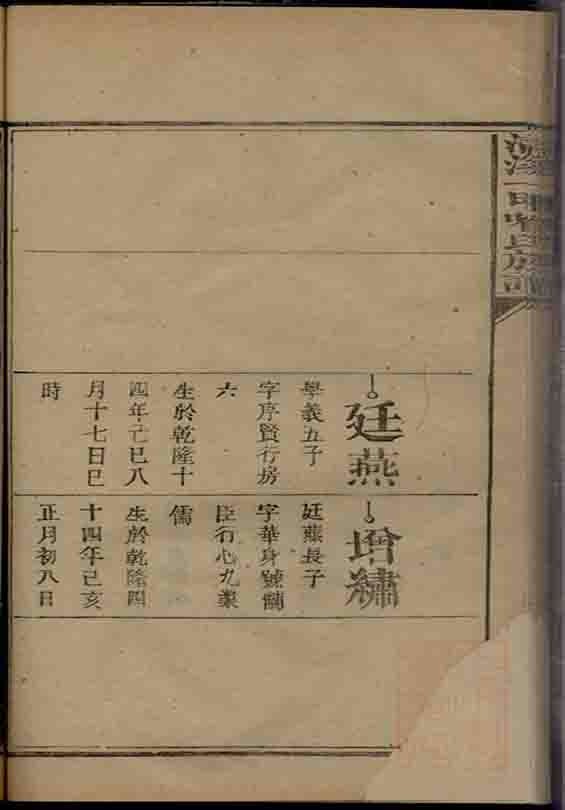 廷燕
學義五子
字序賢行房
六
生於乾隆十
四年己巳八
月十七日巳
時
增繡
廷燕長子
字華身號黼
臣行心九業
儒
生於乾隆四
十四年己亥
正月初八日